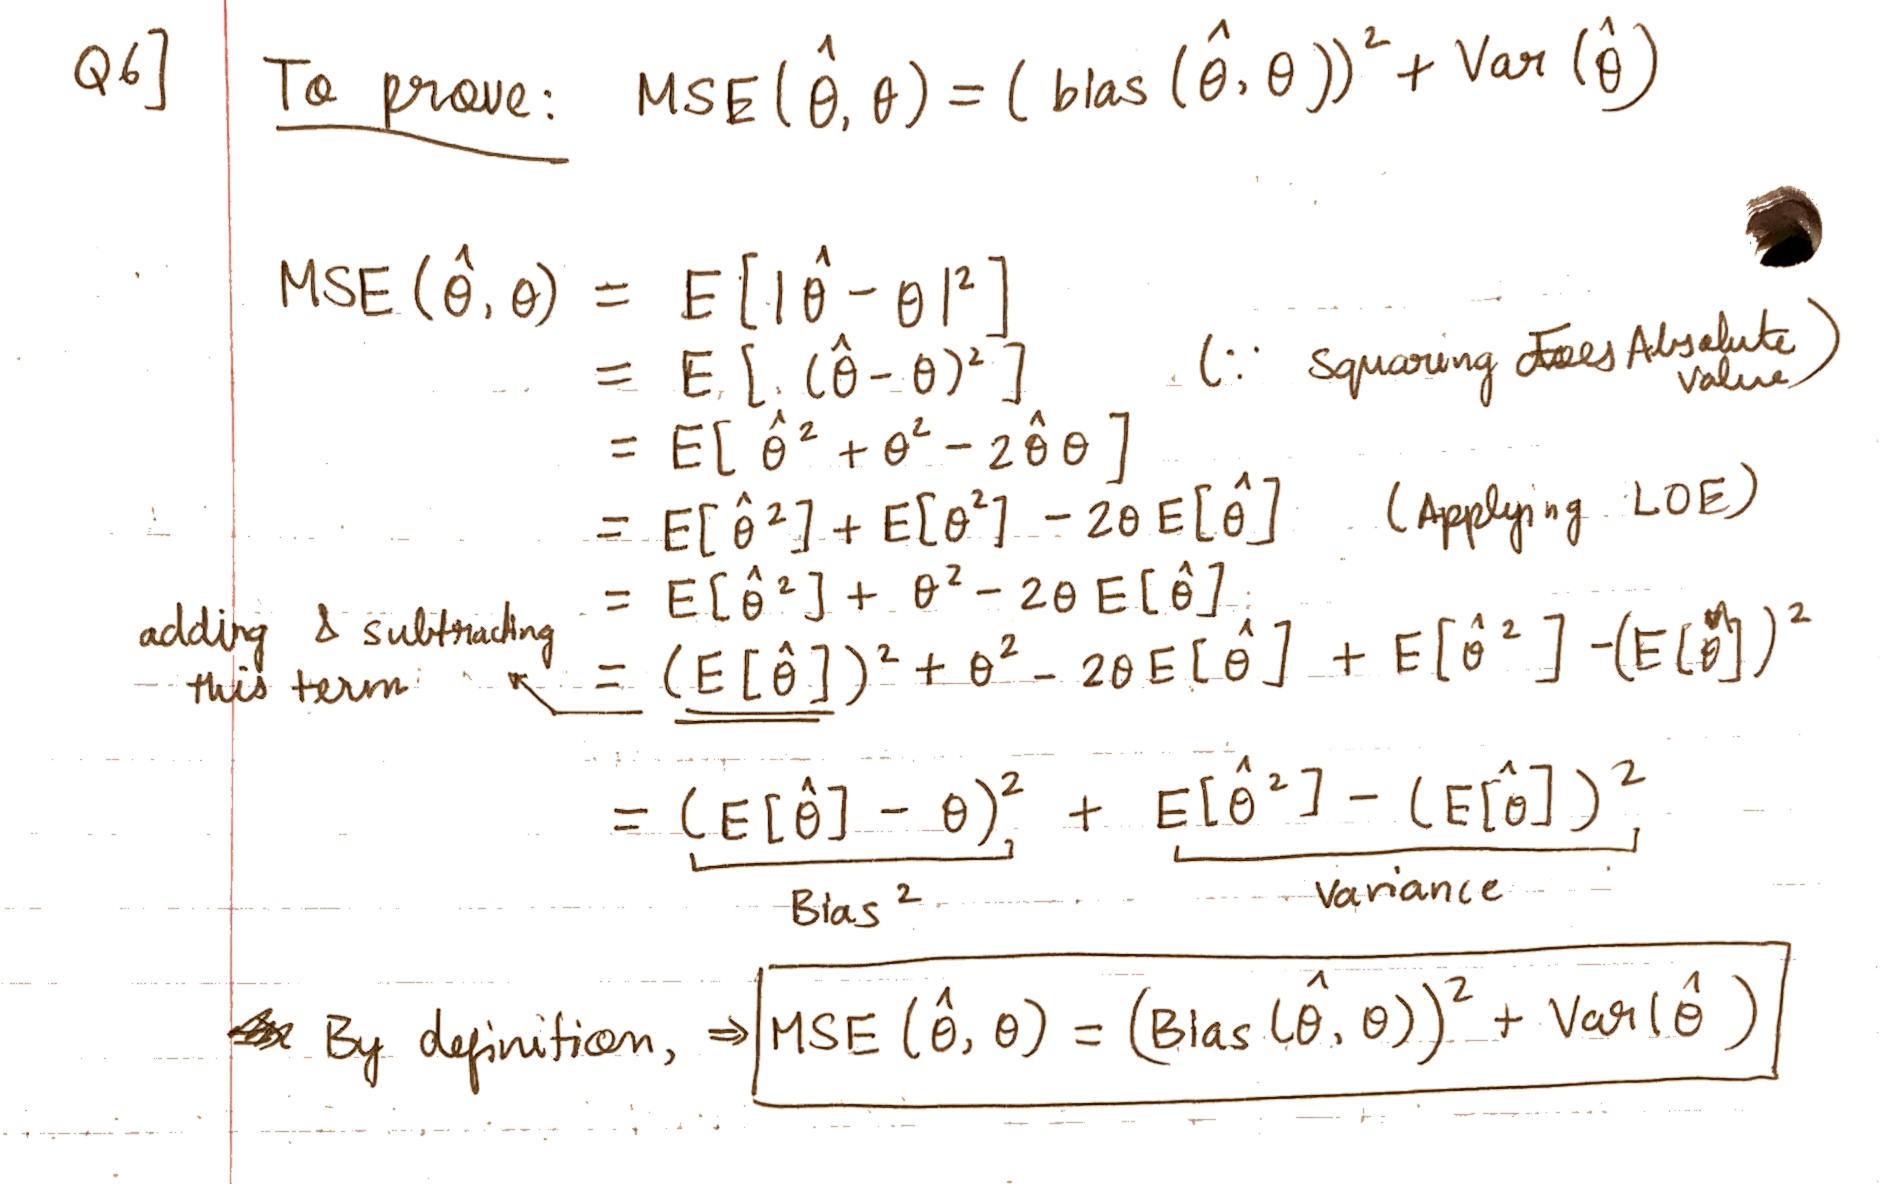 Q6] To prove: MSE(θ̂, θ) = (bias(θ̂, θ))² + Var(θ̂)
MSE(θ̂, θ) = E[|θ̂ - θ|²]
= E[(θ̂ - θ)²] (∵ Squaring does Absolute value)
= E[θ̂² + θ² - 2θ̂θ]
= E[θ̂²] + E[θ²] - 2θ E[θ̂] (Applying LOE)
= E[θ̂²] + θ² - 2θ E[θ̂]
adding & subtracting this term = (E[θ̂])² + θ² - 2θ E[θ̂] + E[θ̂²] - (E[θ̂])²
= (E[θ̂] - θ)² + E[θ̂²] - (E[θ̂])²
Bias² Variance
By definition, ⇒ MSE(θ̂, θ) = (Bias(θ̂, θ))² + Var(θ̂)